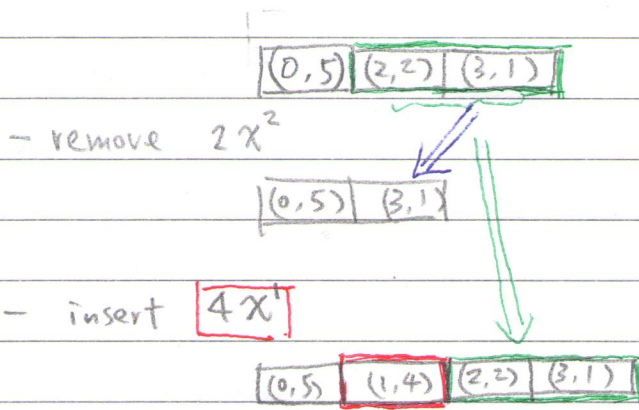 (0,5) (2,2) (3,1)
- remove 2x²
(0,5) (3,1)
- insert 4x¹
(0,5) (1,4) (2,2) (3,1)